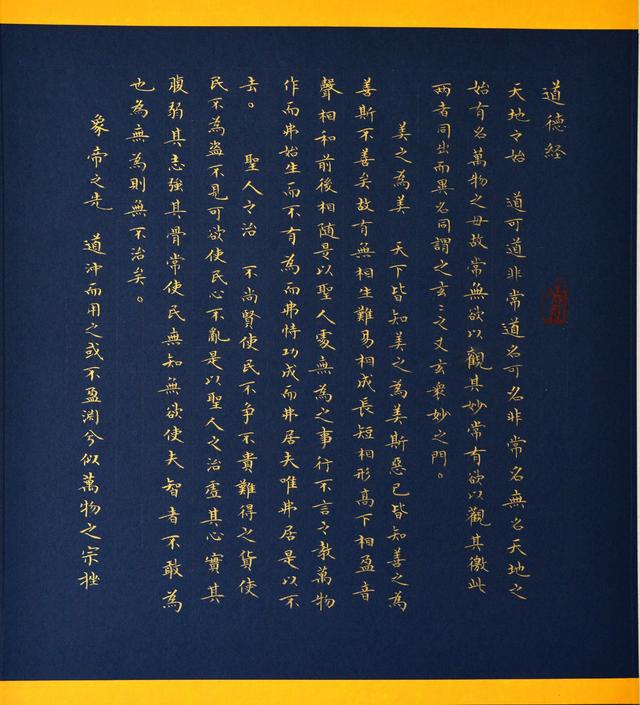 道德经
天地之始　道可道非常道名可名非常名無名天地之
始有名萬物之母故常無欲以觀其妙常有欲以觀其徼此
两者同出而異名同謂之玄玄之又玄衆妙之門。
美之為美　天下皆知美之為美斯惡已皆知善之為
善斯不善矣故有無相生難易相成長短相形高下相盈音
聲相和前後相随是以聖人處無為之事行不言之教萬物
作而弗始生而不有為而弗恃功成而弗居夫唯弗居是以不
去。　聖人之治　不尚賢使民不争不貴難得之貨使
民不為盗不見可欲使民心不亂是以聖人之治虚其心實其
腹弱其志強其骨常使民無知無欲使夫智者不敢為
也為無為則無不治矣。
象帝之先　道沖而用之或不盈渊兮似萬物之宗挫